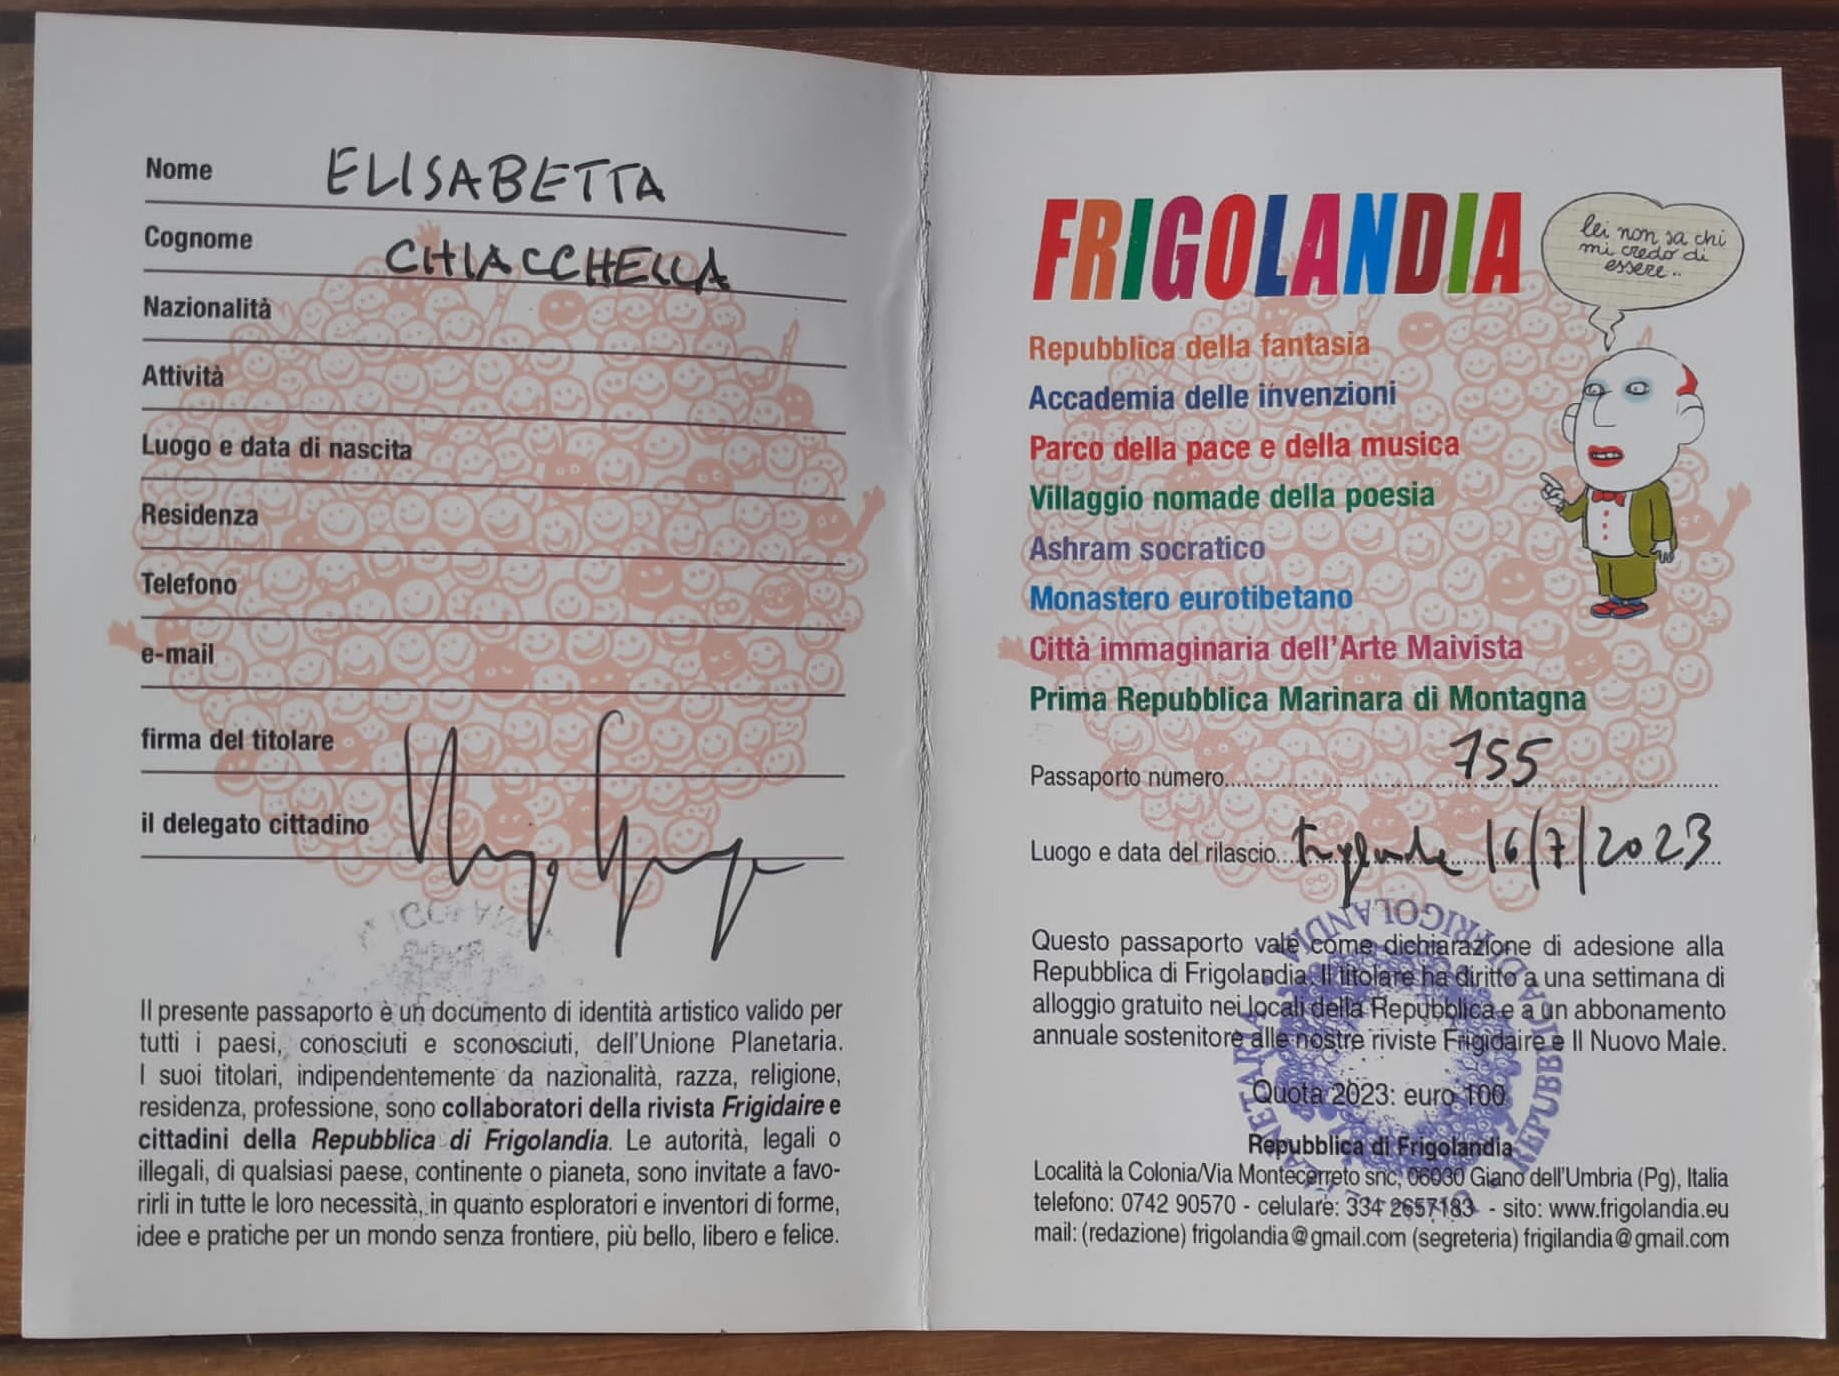 Nome ELISABETTA
Cognome CHIACCHELLA
Nazionalità
Attività
Luogo e data di nascita
Residenza
Telefono
e-mail
firma del titolare
il delegato cittadino
Il presente passaporto è un documento di identità artistico valido per
tutti i paesi, conosciuti e sconosciuti, dell'Unione Planetaria.
I suoi titolari, indipendentemente da nazionalità, razza, religione,
residenza, professione, sono collaboratori della rivista Frigidaire e
cittadini della Repubblica di Frigolandia. Le autorità, legali o
illegali, di qualsiasi paese, continente o pianeta, sono invitate a favo-
rirli in tutte le loro necessità, in quanto esploratori e inventori di forme,
idee e pratiche per un mondo senza frontiere, più bello, libero e felice.
FRIGOLANDIA
lei non sa chi
mi credo di
essere..
Repubblica della fantasia
Accademia delle invenzioni
Parco della pace e della musica
Villaggio nomade della poesia
Ashram socratico
Monastero eurotibetano
Città immaginaria dell'Arte Maivista
Prima Repubblica Marinara di Montagna
Passaporto numero 755
Luogo e data del rilascio 16/7/2023
Questo passaporto vale come dichiarazione di adesione alla
Repubblica di Frigolandia. Il titolare ha diritto a una settimana di
alloggio gratuito nei locali della Repubblica e a un abbonamento
annuale sostenitore alle nostre riviste Frigidaire e Il Nuovo Male.
Quota 2023: euro 100
Repubblica di Frigolandia
Località la Colonia/Via Montecerreto snc, 06030 Giano dell'Umbria (Pg), Italia
telefono: 0742 90570 - celulare: 334 2657183 - sito: www.frigolandia.eu
mail: (redazione) frigolandia@gmail.com (segreteria) frigilandia@gmail.com
REPUBBLICA DI FRIGOLANDIA